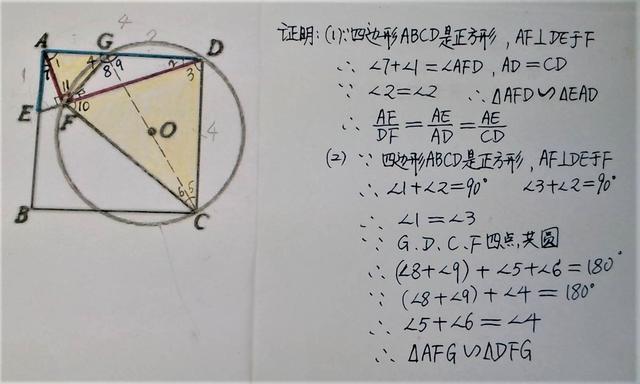 证明：(1)∵四边形ABCD是正方形，AF⊥DE于F
∴ ∠7+∠1=∠AFD，AD=CD
∵ ∠2=∠2 ∴ △AFD∽△EAD
∴ AF/DF = AE/AD = AE/CD
(2) ∵ 四边形ABCD是正方形，AF⊥DE于F
∴ ∠1+∠2=90° ∠3+∠2=90°
∴ ∠1=∠3
∵ G.D.C.F四点共圆
∴ (∠8+∠9)+∠5+∠6=180°
∵ (∠8+∠9)+∠4=180°
∴ ∠5+∠6=∠4
∴ △AFG∽△DFG
4
A G 2 D
1 7 1 4 8 9 2 3
11
E F 10
O 4
6 5
B C